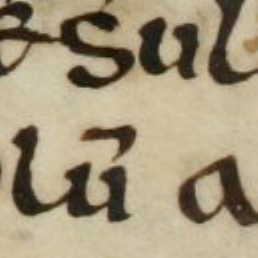 sul
lū a